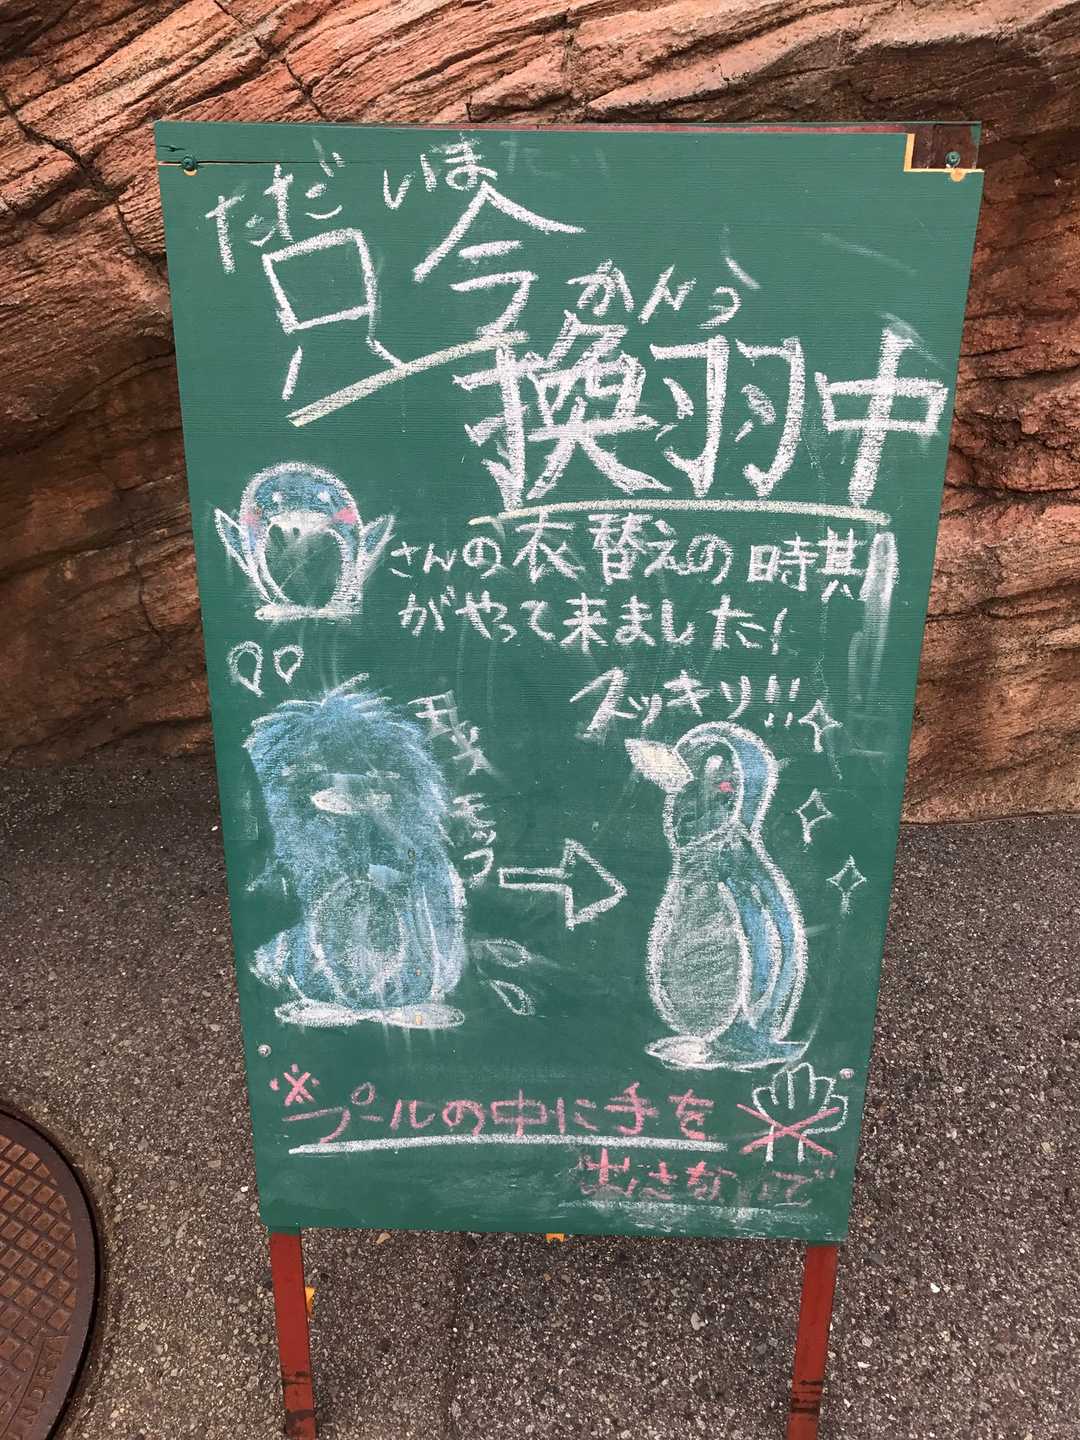 ただ いま
只今
かんう
換羽中
さんの衣替えの時期
がやって来ました!
スッキリ!!
モッサ
モッフ
※プールの中に手を
出さないで